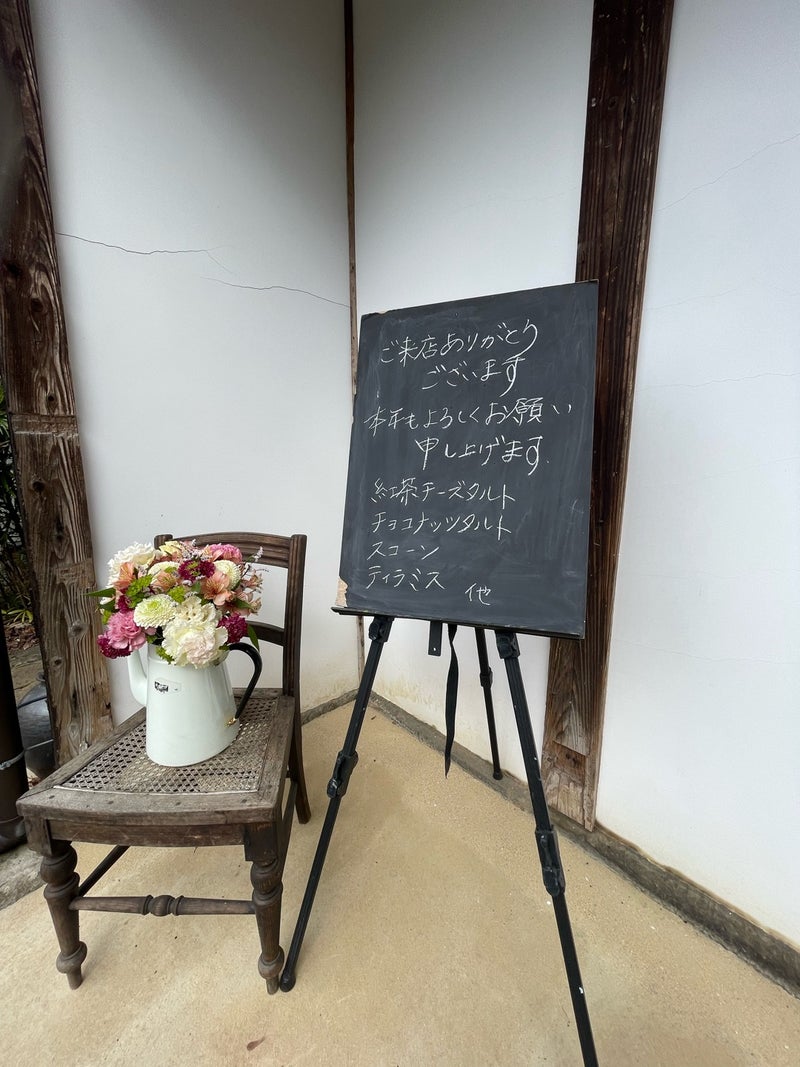 ご来店ありがとう
ございます
本年もよろしくお願い
申し上げます
紅茶チーズタルト
チョコナッツタルト
スコーン
ティラミス
他